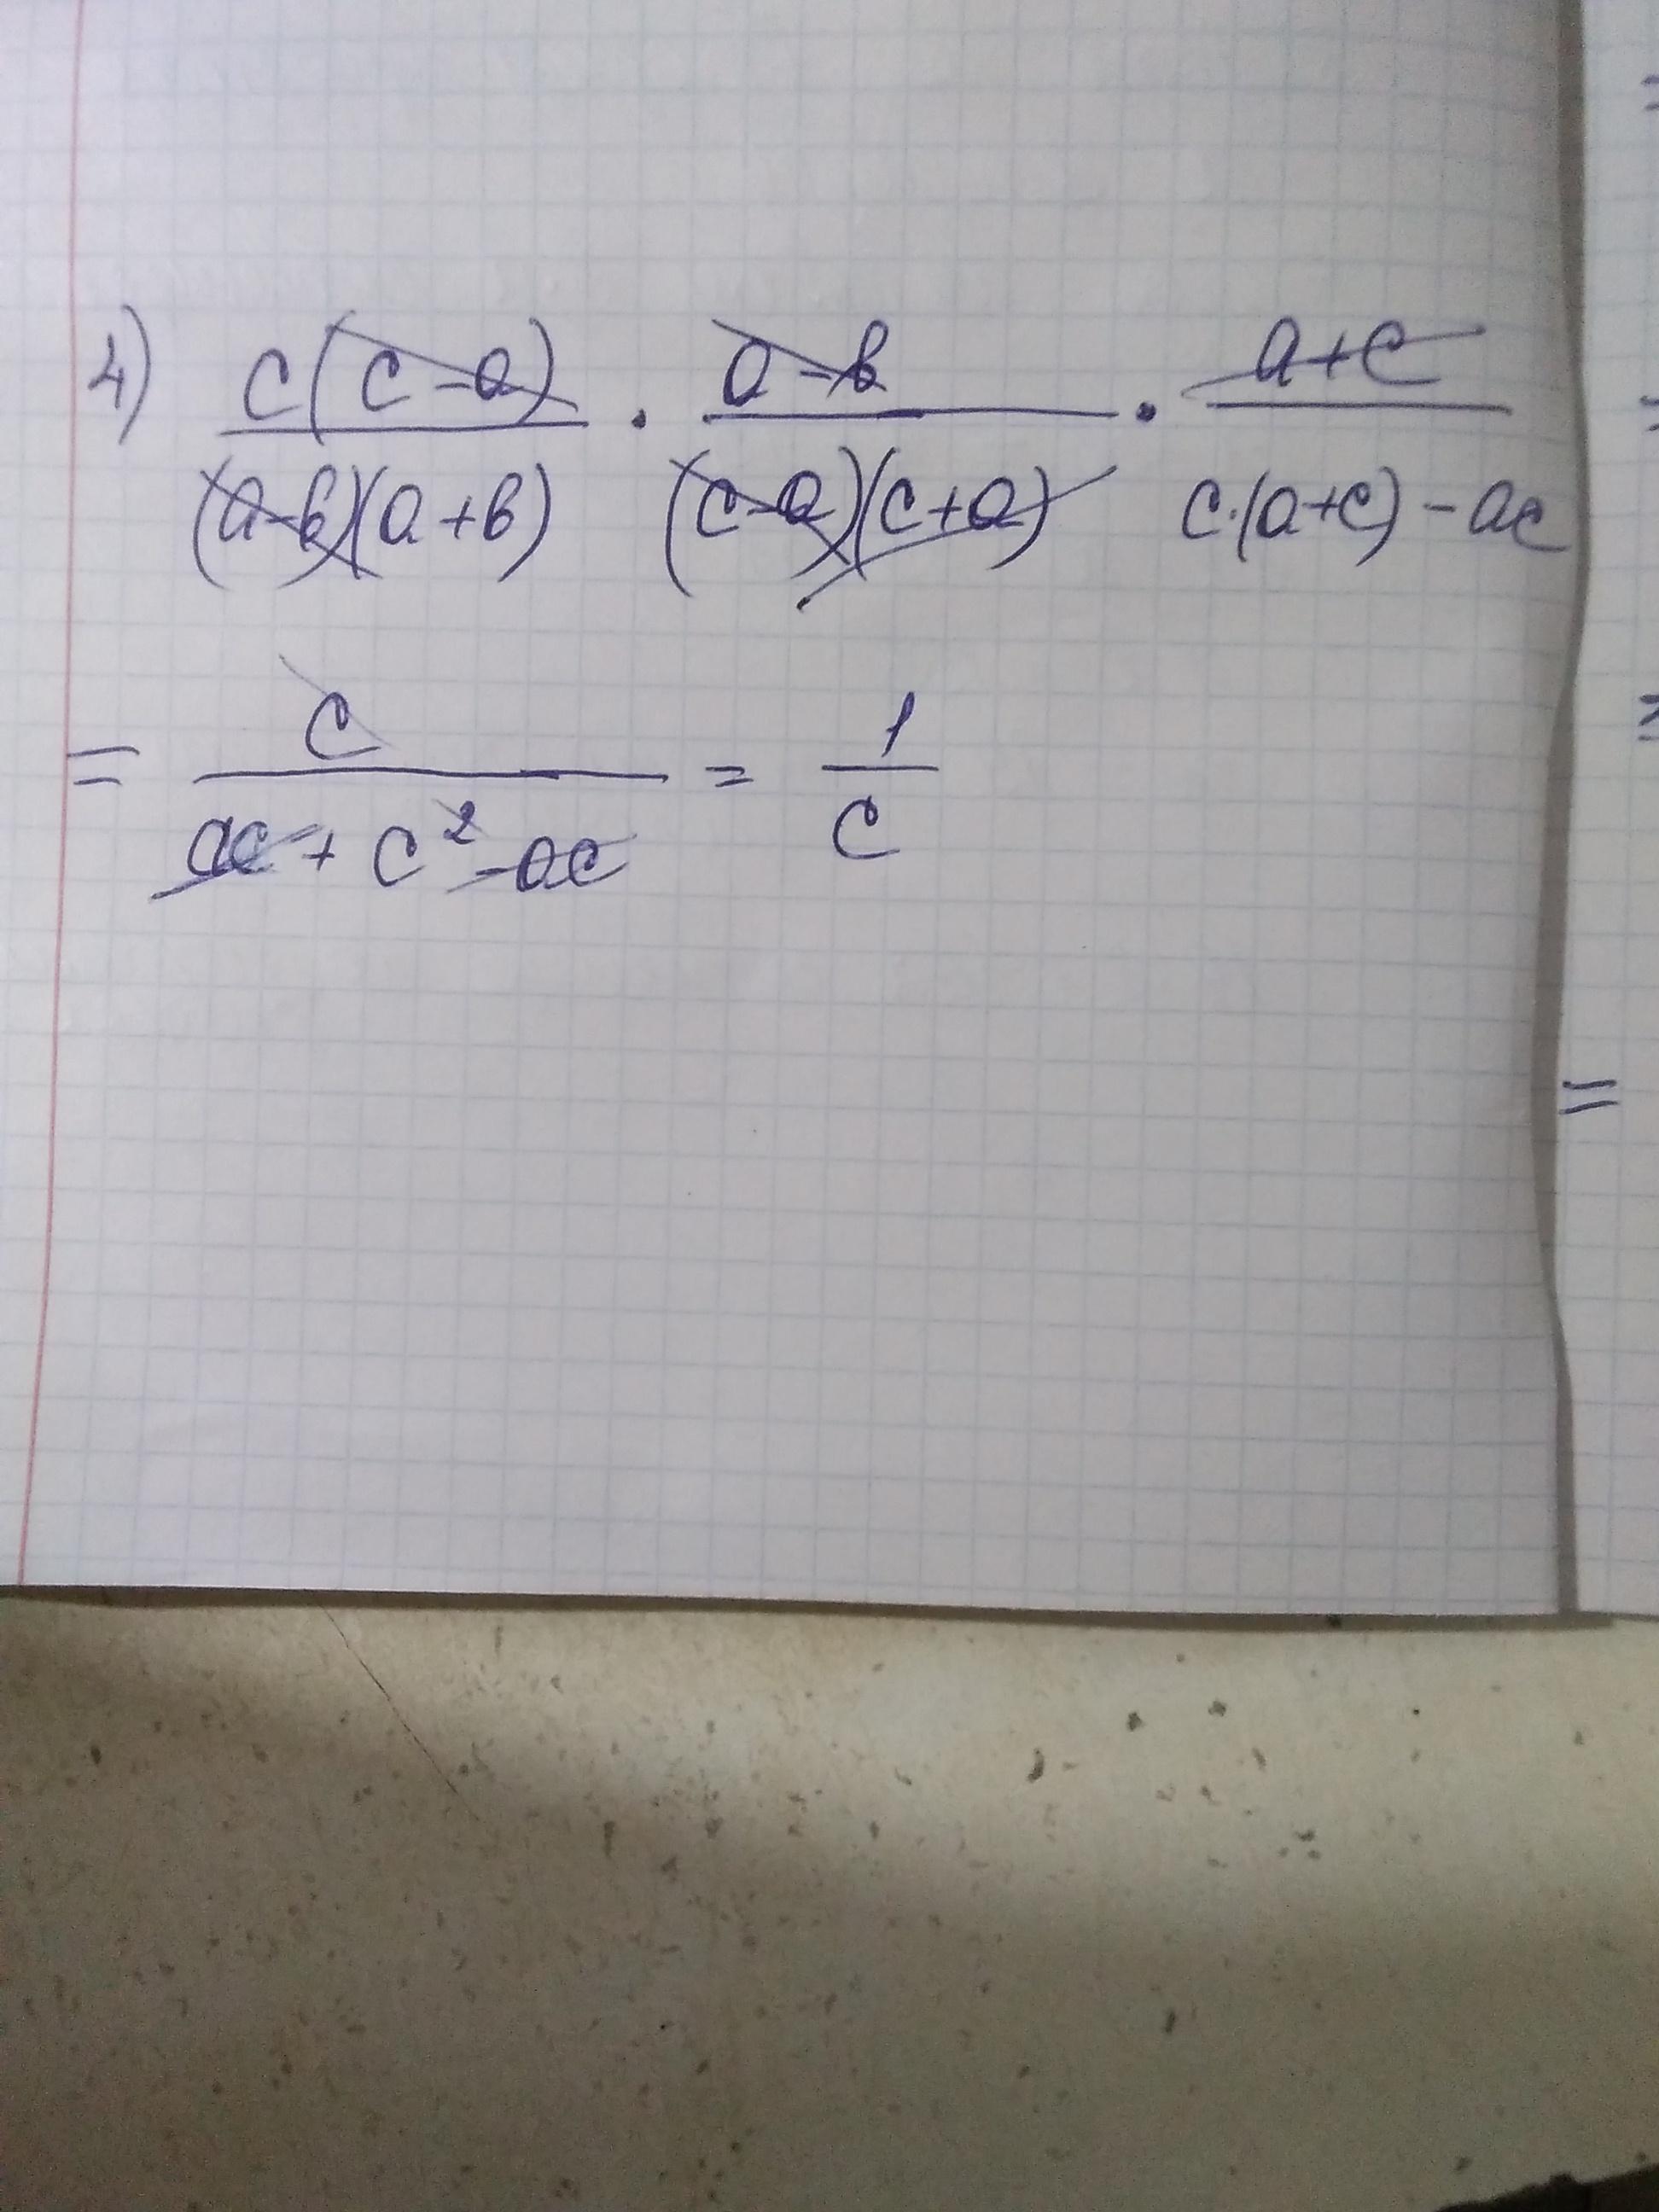 4) c(c-a)/(a-b)(a+b) · a-b/(c-a)(c+a) · a+c/c·(a+c)-ac
= c/ac+c²-ac = 1/c